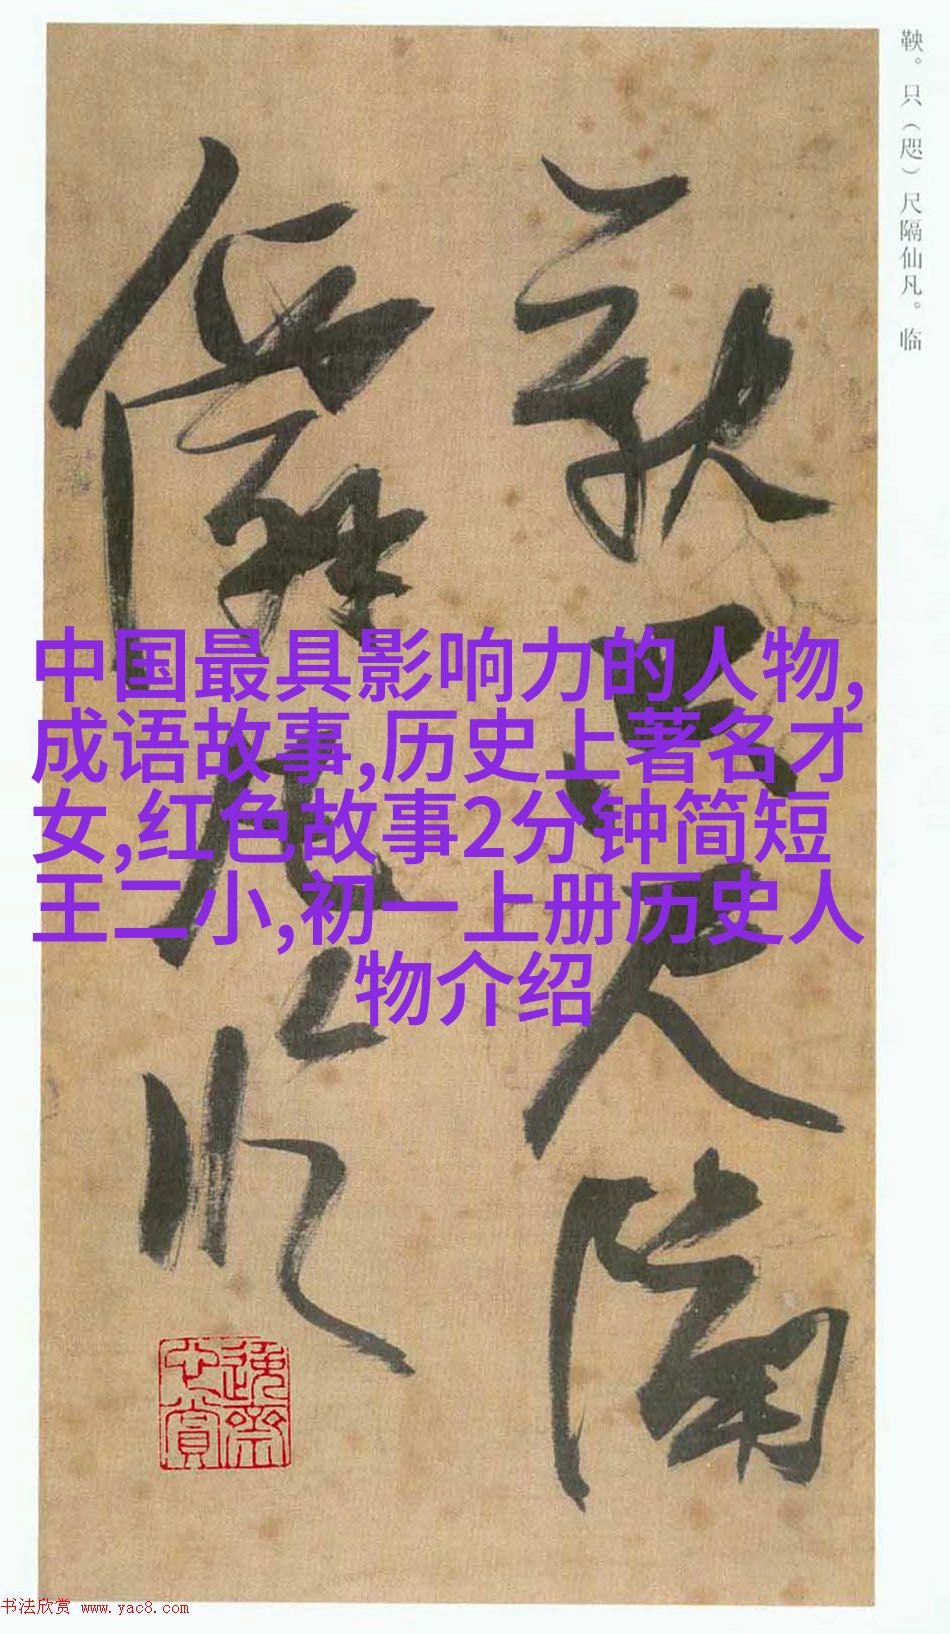 鞅。只（咫）尺隔仙凡。临
鞅只尺隔
仙凡临
中国最具影响力的人物,
成语故事,历史上著名才
女,红色故事2分钟简短
王二小,初一上册历史人
物介绍
书法欣赏 www.yac8.com